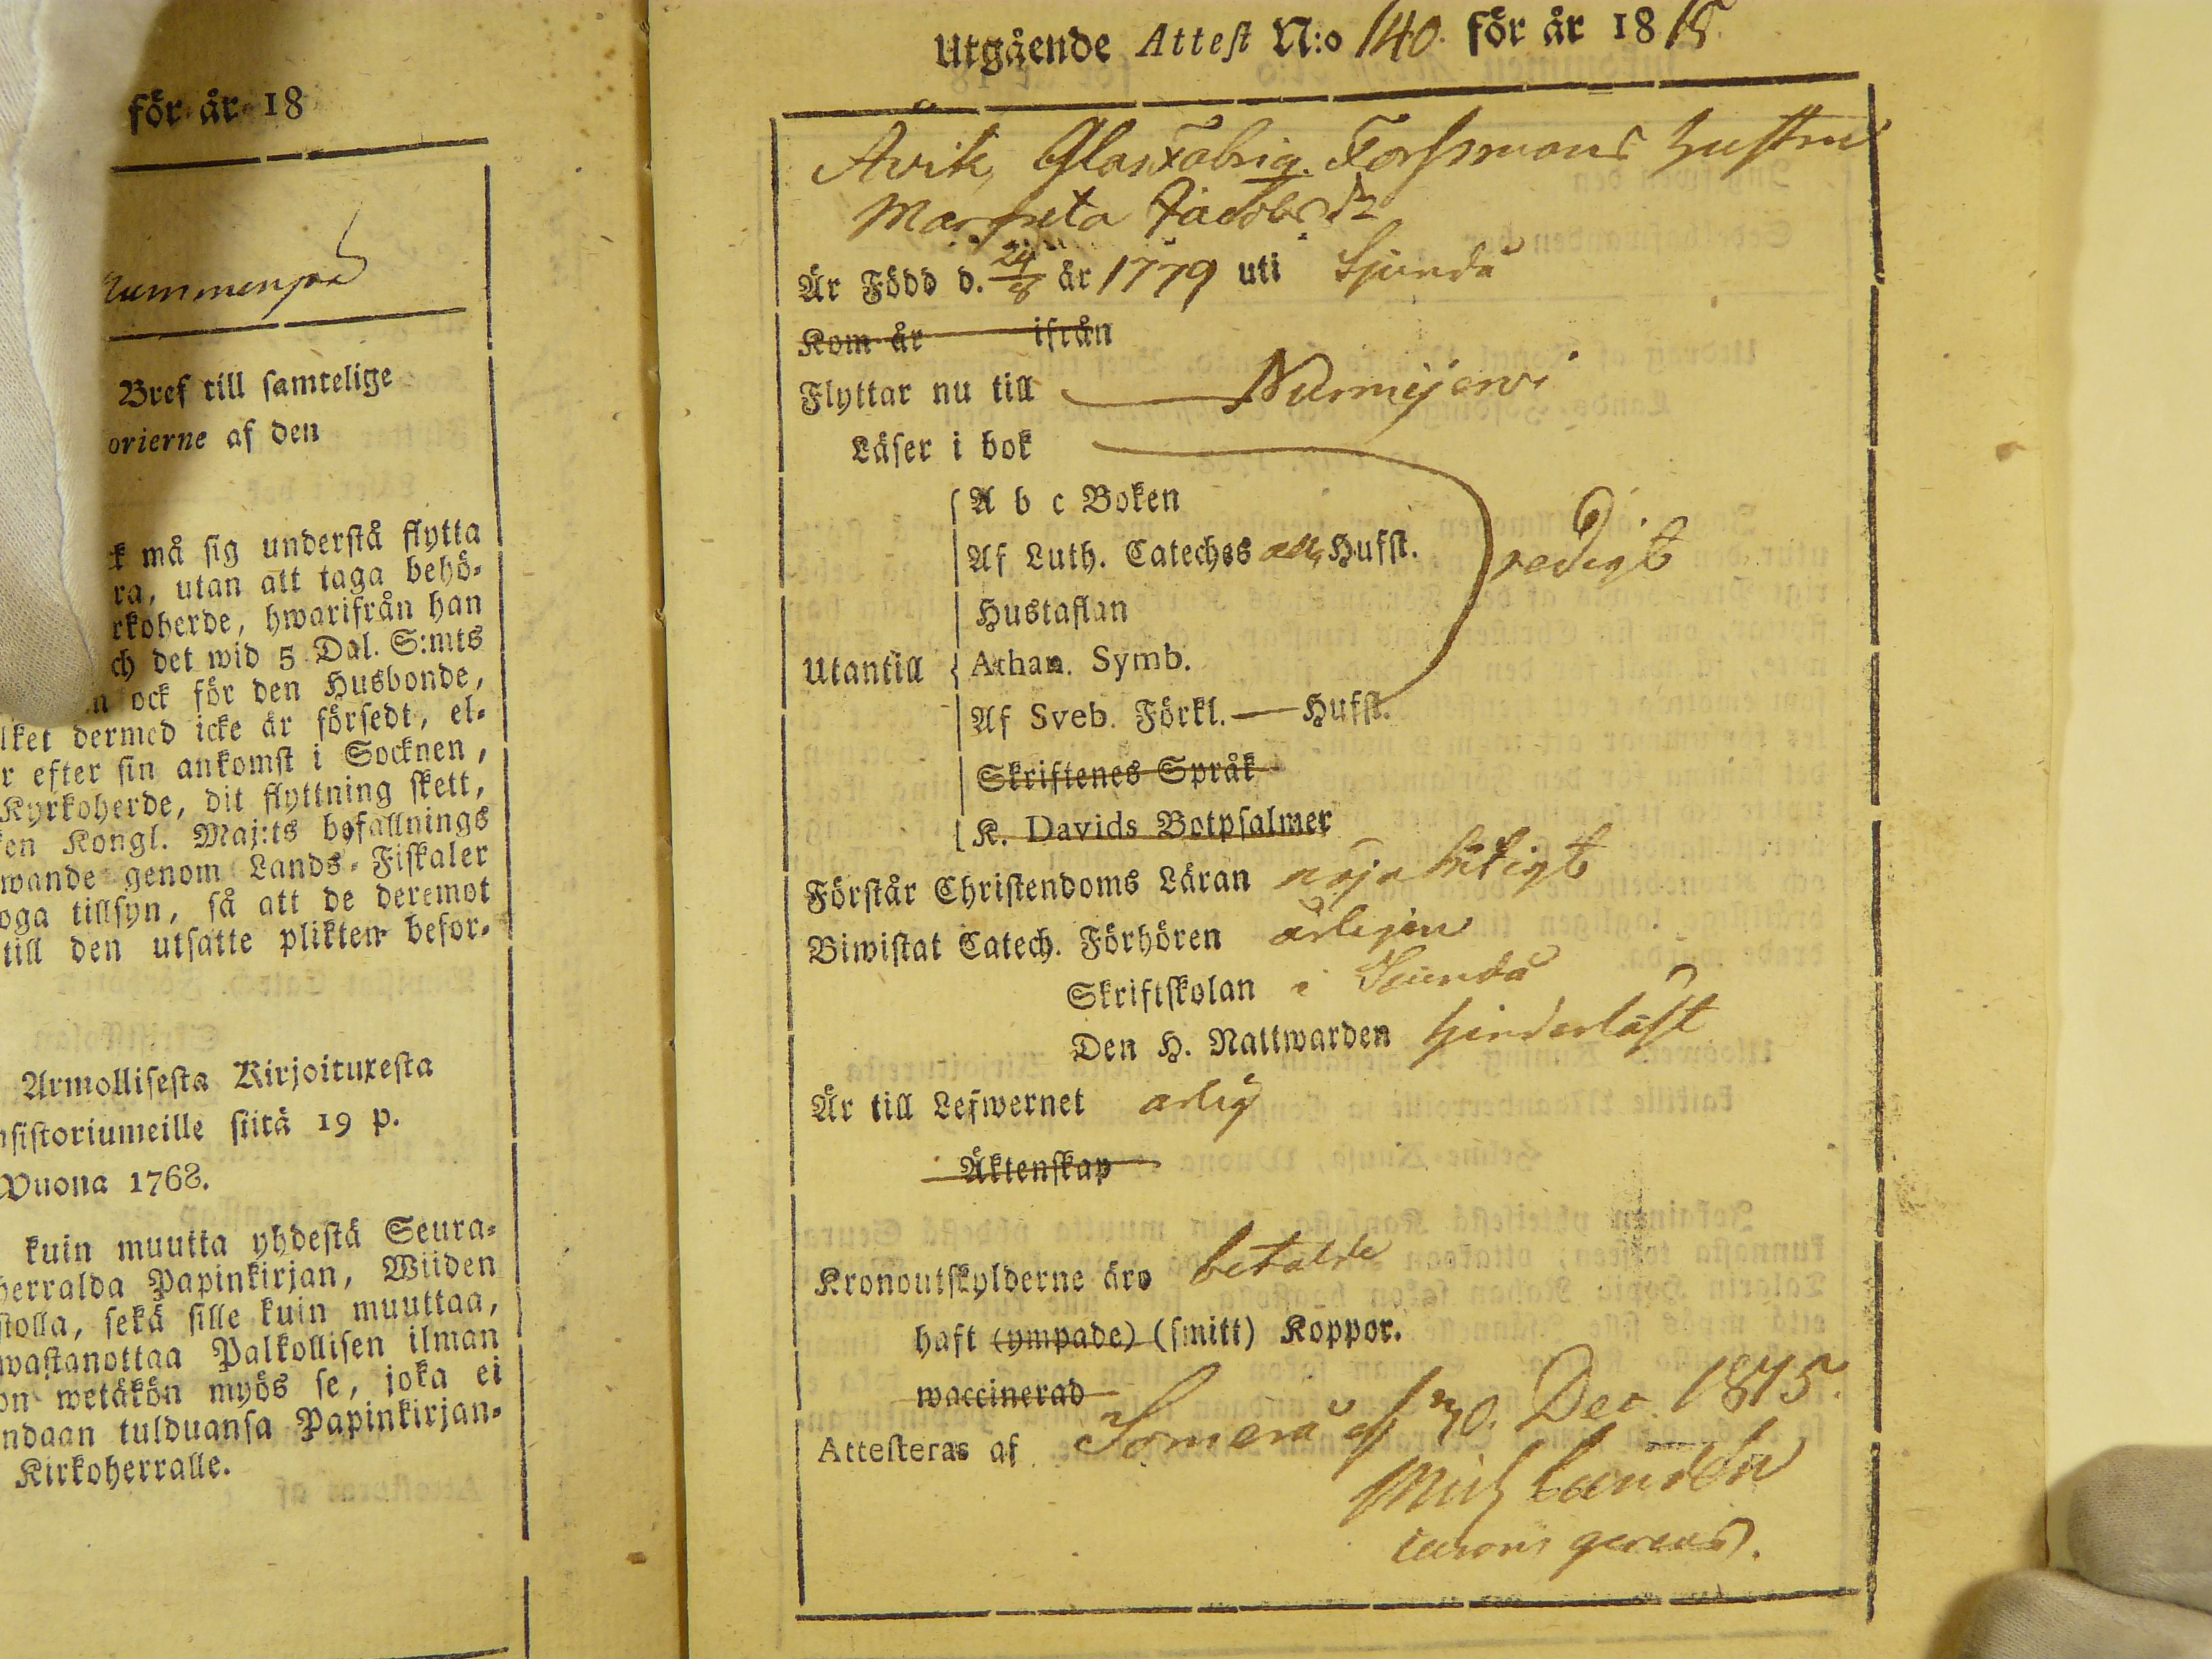 för år 18
Bref till samtelige
orierne af den
må sig understå flytta
ra, utan att taga behö-
rkoherde, hwarifrån han
ch det wid 5 Dal. S:mts
n ock för den Husbonde,
lket dermed icke är försedt, el-
r efter sin ankomst i Socknen,
Kyrkoherde, dit flyttning skett,
en Kongl. Maj:ts befallnings
wande genom Lands-Fiskaler
oga tillsyn, så att de deremot
till den utsatte plikten befor-
Armollisesta Kirjoituxesta
nsistoriumeille siitä 19 p.
Wuona 1768.
kuin muutta yhdestä Seura-
herralda Papinkirjan, Wiiden
stolla, sekä sille kuin muuttaa,
wastanottaa Palkollisen ilman
on wetäkön myös se, joka ei
ndaan tulduansa Papinkirjan-
Kirkoherralle.
Utgående Attest N:o 140. för år 1815
Avik, Glasfabriq. Forssmans hustru
Margreta Jacobsdr
Är Född d. 24/8 år 1779 uti Sjundå
Kom år ifrån
Flyttar nu till Nurmijerwi
Läser i bok
A b c Boken
Af Luth. Cateches all Hufst.
redigt
Hustaflan
Utantill Athan. Symb.
Af Sveb. Förkl. — Hufst.
Skriftenes Språk
K. Davids Botpsalmer
Förstår Christendoms Läran nöjaktigt
Biwistat Catech. Förhören årligen
Skriftskolan i Sjundå
Den H. Nattwarden hinderlöst
Är till Lefwernet ärlig
Äktenskap
Kronoutskylderne äro betalde
haft (ympade) (smitt) Koppor.
waccinerad
Attesteras af Somero d. 30. Dec. 1815.
Mich Lundén